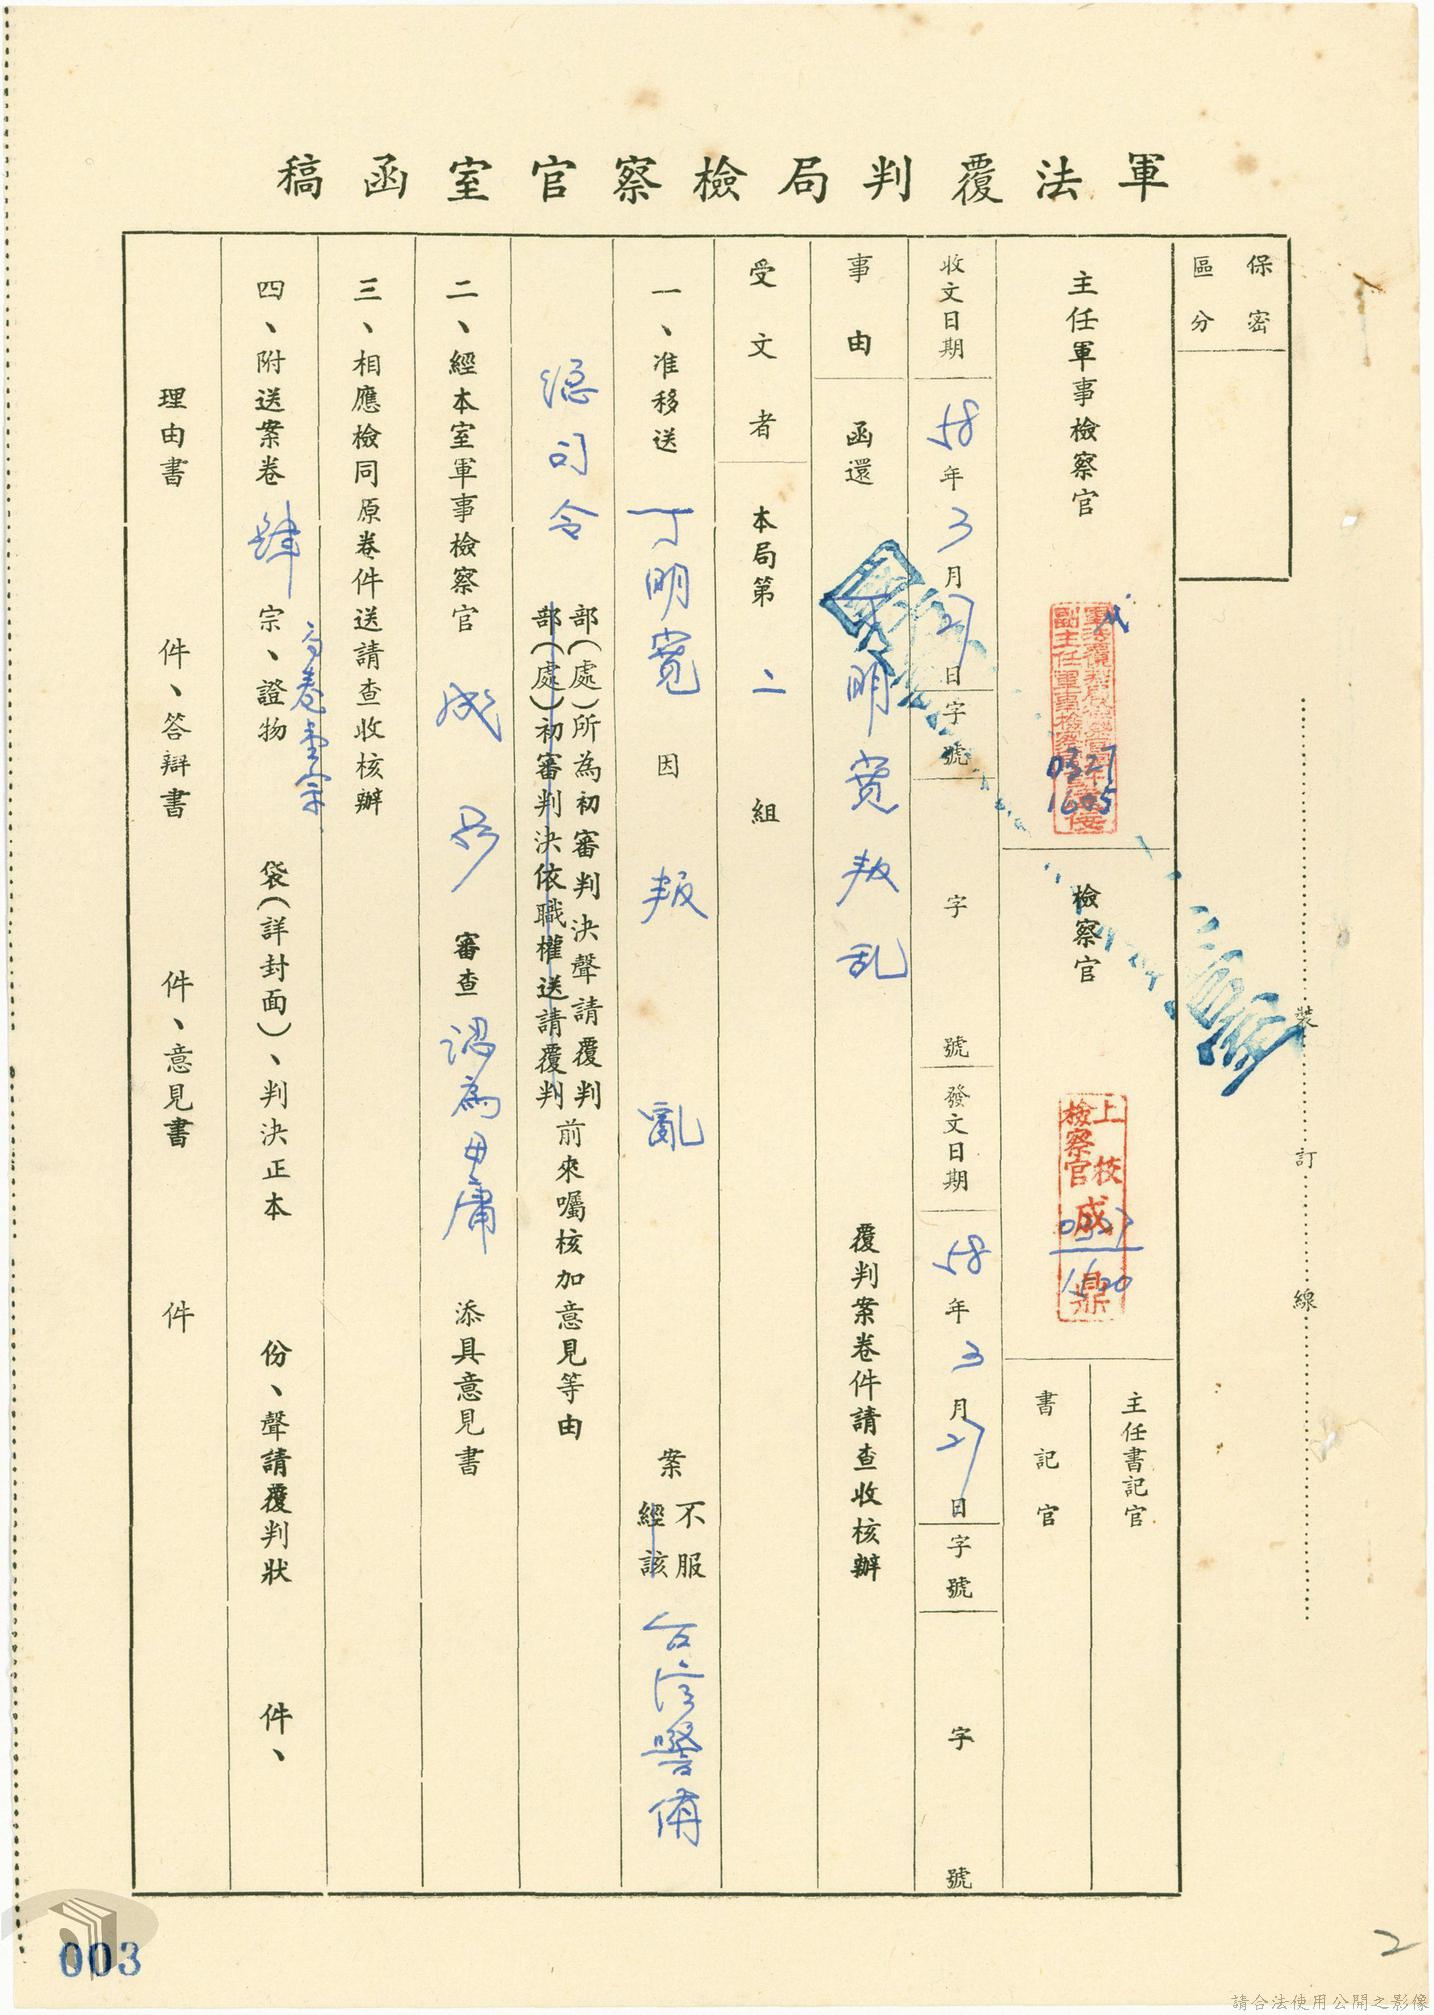 軍法覆判局檢察官室函稿
保密
區分
主任軍事檢察官
0327
1605
檢察官
上校
檢察官
成鼎
1520
主任書記官
書記官
收文日期 58年3月27日 字號 字 號 發文日期 58年3月27日 字號 字 號
事由 函還 丁明寬叛乱 覆判案卷件請查收核辦
受文者 本局第二組
一、准移送 丁明寬 因 叛亂 案 不服 經該 台湾警備
總司令 部(處)所為初審判決聲請覆判 部(處)初審判決依職權送請覆判 前來囑核加意見等由
二、經本室軍事檢察官 成鼎 審查 認為毋庸 添具意見書
三、相應檢同原卷件送請查收核辦
四、附送案卷 肆 宗、證物 袋(詳封面)、判決正本 份、聲請覆判狀 件、
卷壹宗
理由書 件、答辯書 件、意見書 件
裝 訂 線
003
2
請合法使用公開之影像